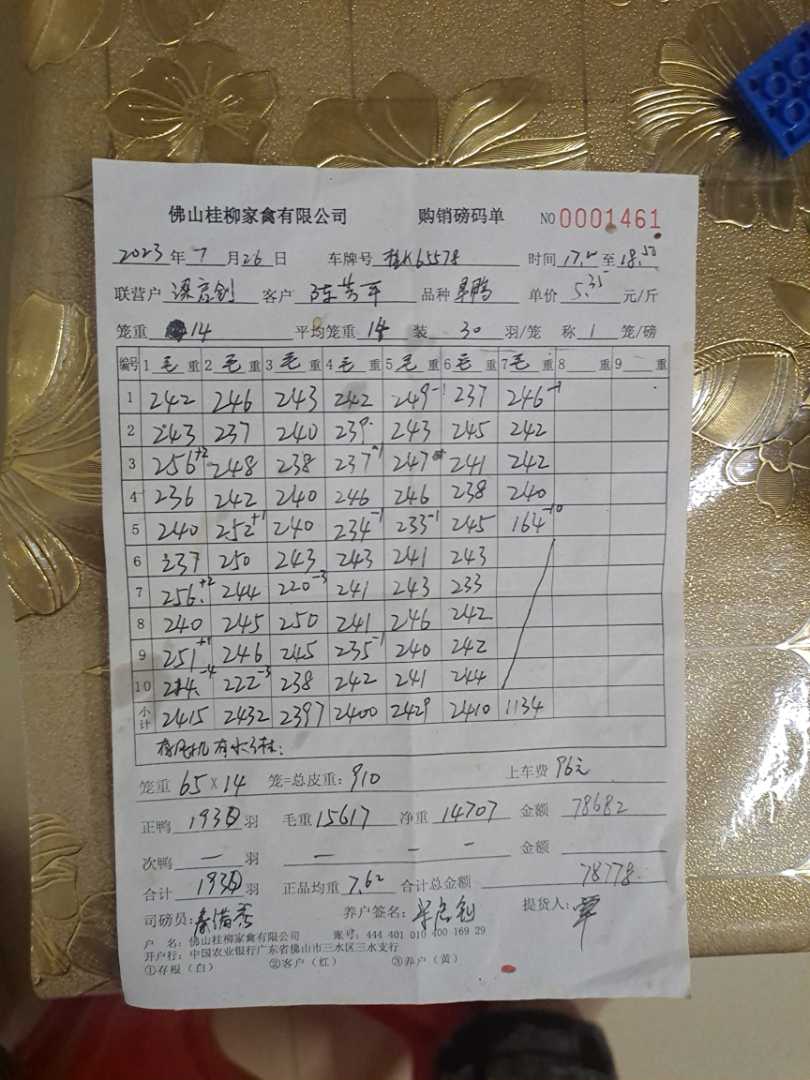 佛山桂柳家禽有限公司 购销磅码单 NO 0001461
2023 年 7 月 26 日 车牌号 桂K65578 时间 17. 至 18.50
联营户 客户 陈芳平 品种 单价 5.35 元/斤
笼重 14 平均笼重 14 装 30 羽/笼 称 1 笼/磅
编号 1 毛 重 2 毛 重 3 毛 重 4 毛 重 5 毛 重 6 毛 重 7 毛 重 8 重 9 重
1 242 246 243 242 249-1 237 246-1
2 243 237 240 239 243 245 242
3 256+2 248 238 237-1 247 241 242
4 236 242 240 246 246 238 240
5 240 252+1 240 234-1 233-1 245 164-10
6 237 250 243 243 241 243
7 256+2 244 220-3 241 243 233
8 240 245 250 241 246 242
9 251+1 246 245 235-1 240 242
10 214-4 222-3 238 242 241 244
小计 2415 2432 2397 2400 2429 2410 1134
笼重 65×14 笼=总皮重: 910 上车费 96元
正鸭 羽 毛重 15617 净重 14707 金额 78682
次鸭 — 羽 — — 金额
合计 羽 正品均重 7.62 合计总金额 78778
司磅员: 养户签名: 提货人:
户 名: 佛山桂柳家禽有限公司 账号: 444 401 010 400 169 29
开户行: 中国农业银行广东省佛山市三水区三水支行
①存根（白） ②客户（红） ③养户（黄）